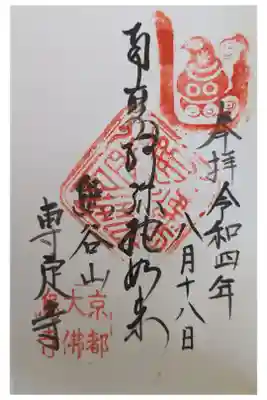 奉拝 令和四年
八月十八日
南無阿弥陀如来
熊谷山
専定寺
京都
大佛